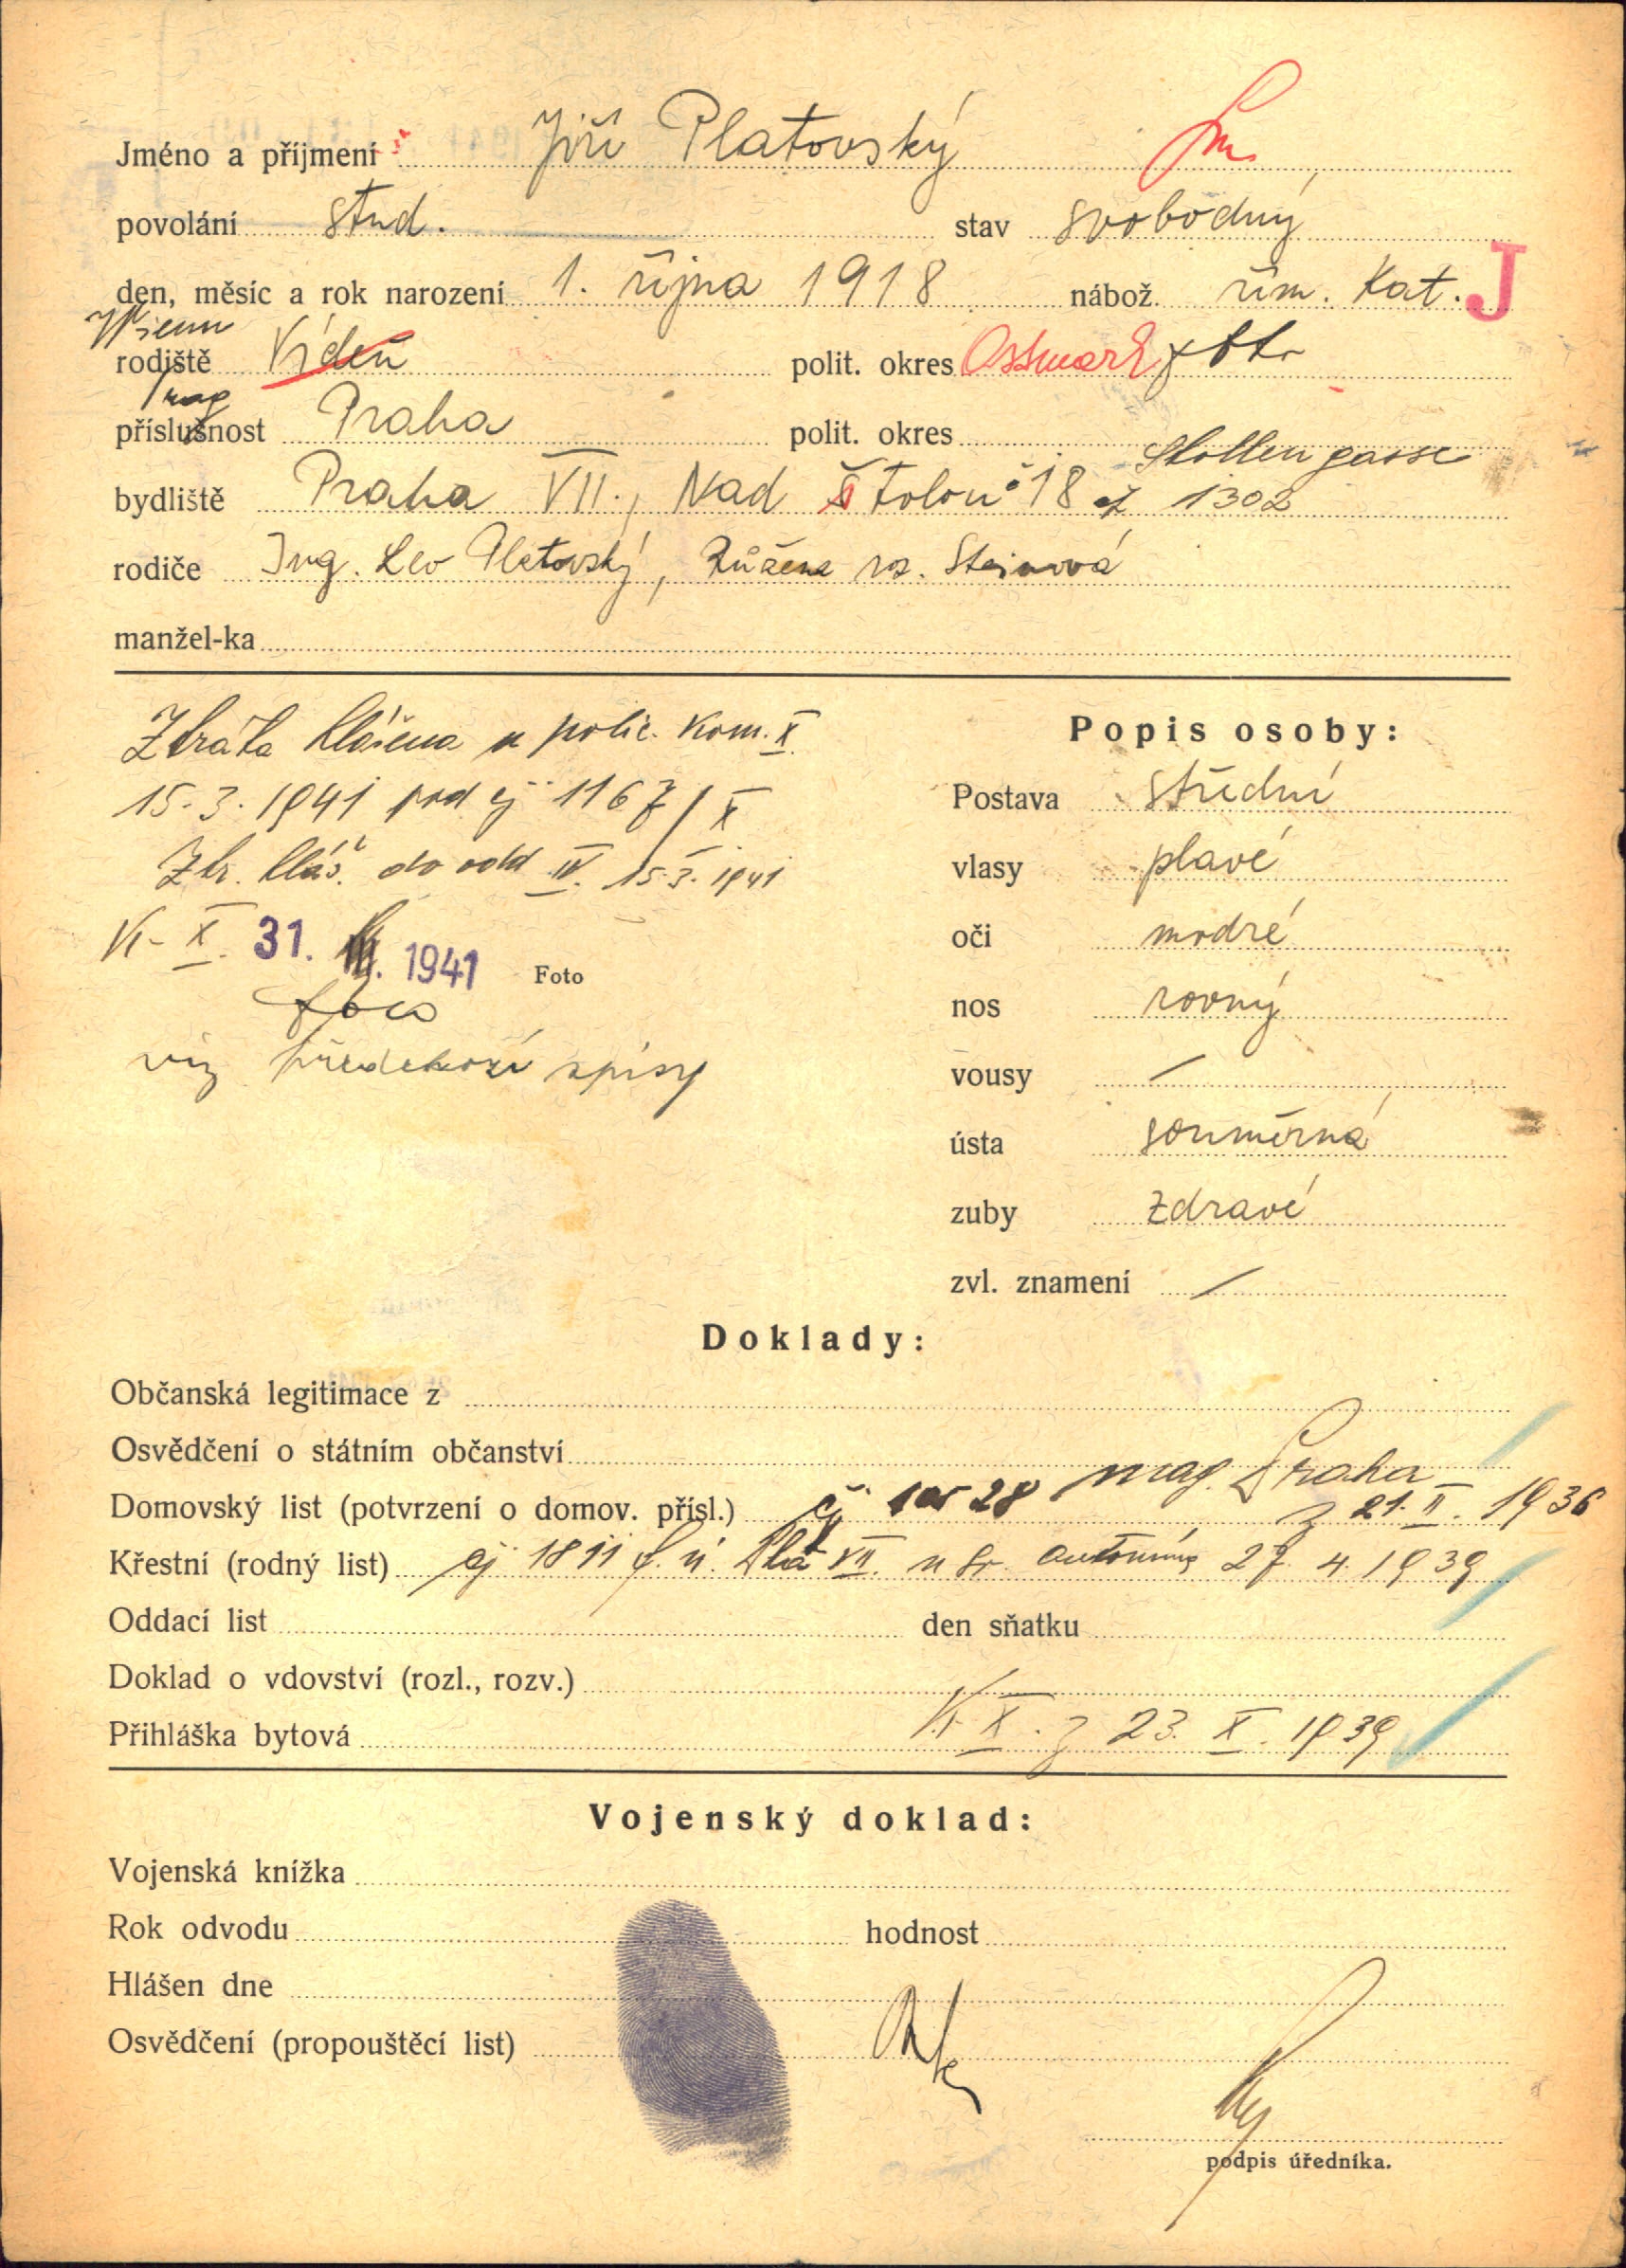 Jméno a příjmení Jiří Platovský
povolání stud. stav svobodný
den, měsíc a rok narození 1. října 1918 nábož. řím. kat. J
Wien
rodiště Vídeň polit. okres Ostmark
Prag
příslušnost Praha polit. okres
Stollengasse
bydliště Praha VII., Nad Štolou 18 1302
rodiče Ing. Leo Platovský, Růžena roz. Steinová
manžel-ka
Ztráta hlášena u polic. kom. X.
15.3.1941 pod čj 1167/X
Popis osoby:
Postava střední
Ztr. hláš. do odd IV. 15.3.1941
vlasy plavé
K- X. 31. III. 1941 Foto
oči modré
nos rovný
viz předchozí spisy
vousy /
ústa souměrná
zuby zdravé
zvl. znamení /
Doklady:
Občanská legitimace z
Osvědčení o státním občanství
mag. Praha
Domovský list (potvrzení o domov. přísl.) čj 28 z 21. II. 1936
Křestní (rodný list) čj 1811 f. ú. VII. u sv. Antonína 27. 4. 1939
Oddací list den sňatku
Doklad o vdovství (rozl., rozv.)
Přihláška bytová X. z 23. X. 1939
Vojenský doklad:
Vojenská knížka
Rok odvodu hodnost
Hlášen dne
Osvědčení (propouštěcí list)
podpis úředníka.